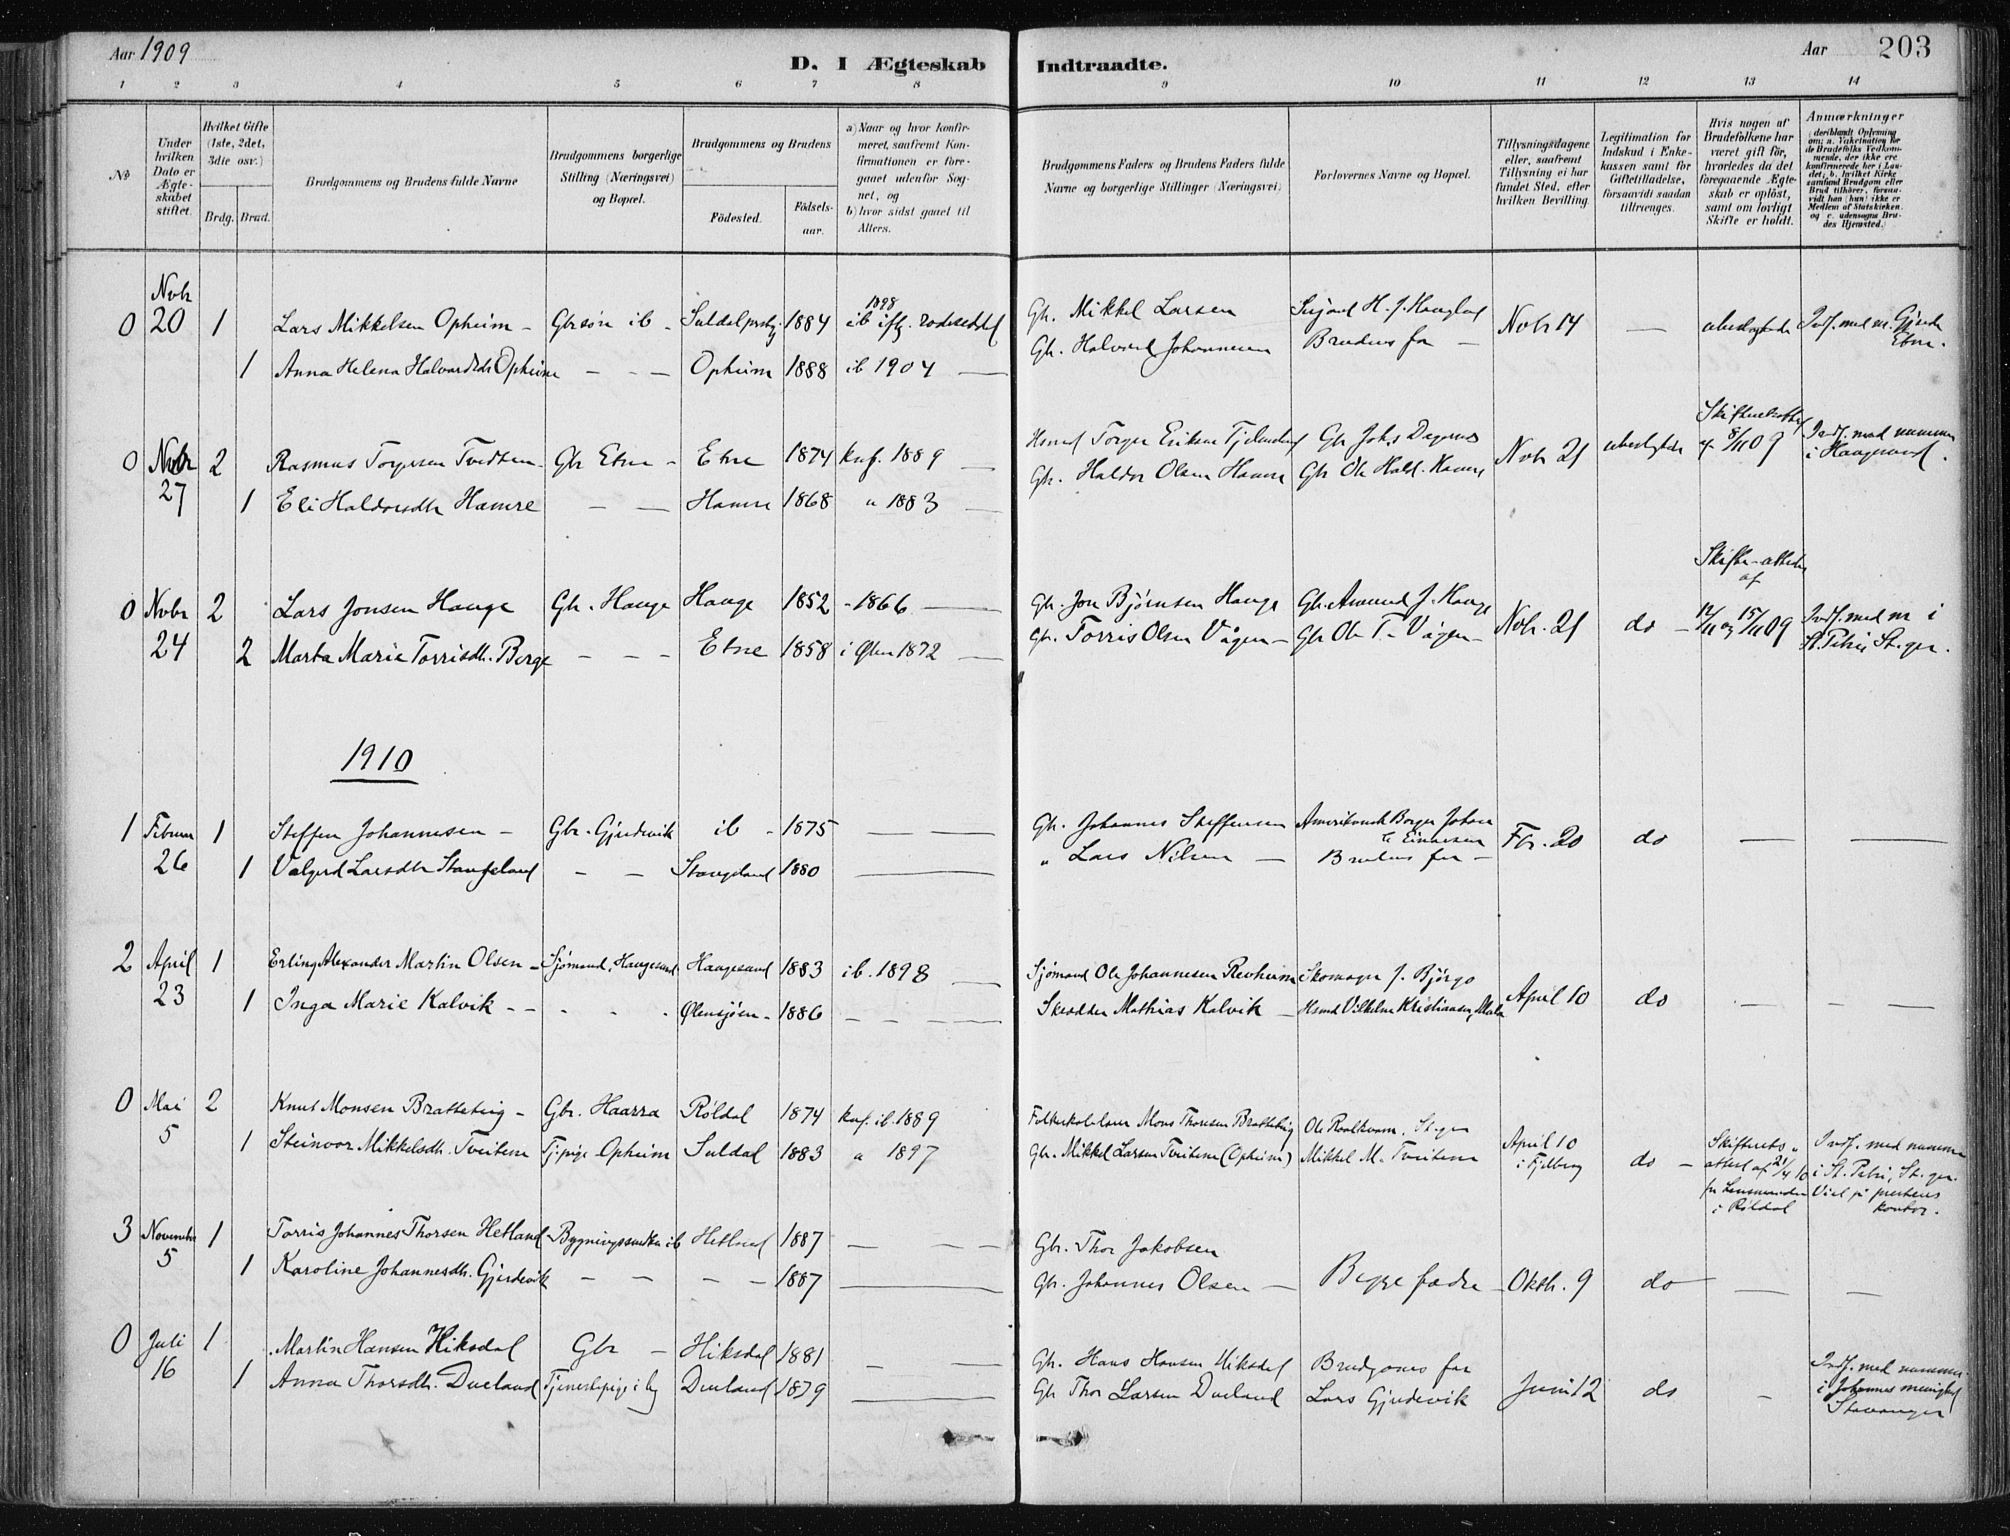 Aar 1909
D. I Ægteskab Indtraadte.
Aar 203
1 2 3 4 5 6 7 8 9 10 11 12 13 14
No
Under hvilken Dato er Ægteskabet stiftet.
Hvilket Gifte (1ste, 2det, 3die osv.)
Brdg. Brud.
Brudgommens og Brudens fulde Navne
Brudgommens borgerlige Stilling (Næringsvei) og Bopæl.
Brudgommens og Brudens
Födested.
Födselsaar.
a) Naar og hvor konfirmeret, saafremt Konfirmationen er foregaaet udenfor Sognet, og
b) hvor sidst gaaet til Alters.
Brudgommens Faders og Brudens Faders fulde Navne og borgerlige Stillinger (Næringsvei)
Forlovernes Navne og Bopæl.
Tillysningsdagene eller, saafremt Tillysning ei har fundet Sted, efter hvilken Bevilling.
Legitimation for Indskud i Enkekassen samt for Giftetilladelse, forsaavidt saadan tiltrænges.
Hvis nogen af Brudefolkene har været gift för, hvorledes da det foregaaende Ægteskab er oplöst, samt om lovligt Skifte er holdt.
Anmærkninger (deriblandt Oplysning om: a. Vakcination for de Brudefolks Vedkommende, der ikke ere konfirmerede her i Landet; b. hvilket Kirkesamfund Brudgom eller Brud tilhörer, forsaavidt han (hun) ikke er Medlem af Statskirken. og c. udensogns Brudes Hjemsted.)
0 Nobr 20 1 Lars Mikkelsen Opheim - Gbrsön ib - Suldal 1884 1898 ib Gbr. Mikkel Larsen Nobr 14 — Indf. med nr. Gjerde Etne.
1 Anna Helena Halvardsdtr Opheim — — Opheim 1888 ib 1904 — Gbr. Halvard Johannesen Brudens far —
0 Nobr 27 2 Rasmus Torgersen Tvedten Gbr Etne - Etne 1874 knf. 1889 — Gbr Johs Nobr 21 8/11 09 Indf. med nummer i Haugesund.
1 Eli Haldorsdtr Hamre — — Hamre 1868 " 1883 — Gbr. Haldor Olsen Hamre Gbr Ole Hald. Hamre
0 Nobr 24 2 Lars Jonsen Hauge Gbr. Hauge Hauge 1852 - 1866 — Gbr. Jon Björnsen Hauge Gbr. Amund J. Hauge Nobr. 21 do — Skifte-attester af 12/11 og 15/11 09 Indf. med nr i St. Petri St.ger.
2 Marta Marie Torrisdtr. Berge — — — Etne 1858 i Ølen 1872 — Gbr. Torris Olsen Vågen — Gbr Ole T. Vågen —
1910
1 Februar 26 1 Steffen Johannesen — Gbr. Gjerdevik ib - 1875 — — Gbr. Johannes Steffensen Amerikansk Borger Johan E Einarsen Fbr. 20 do — —
1 Valgerd Larsdtr Stangeland — — Stangeland 1880 — " Lars Nilsen — Brudens far —
2 April 23 1 Erling Alexander Martin Olsen - Sjömand, Haugesund Haugesund 1883 ib. 1898 — Sjömand Ole Johannesen Revheim Skomager J. Björgo April 10 do — — —
1 Inga Marie Kalvik - - - - - Ølensjöen - 1886 — — — Skredder Mathias Kalvik — Hsmd Vilhelm Kristiansen,
0 Mai 5 2 Knut Monsen Bratteteig - Gbr. Haarra Röldal 1874 knf. ib. 1889 Mons Thorsen Bratteteig Ole St.ger April 10 i Fjelberg do — Skifterets attest af 21/4 10 fr Lensmanden i Röldal Indf. med nummer i St. Petri, St. ger. Viet på prestens kontor.
1 Steinvor Mikkelsdtr. Tveitene Tj.pige Opheim Suldal 1883 " 1897 Gbr. Mikkel Larsen Tveitene (Opheim) Mikkel M. Tveitene
3 November 5 1 Torris Johannes Thorsen Hetland - ib Hetland 1887 — — — Gbr. Thor Jakobsen
1 Karoline Johannesdtr. Gjerdevik — — — — 1887 — Gbr. Johannes Olsen — Begge fædre — Oktbr. 9 do — —
0 Juli 16 1 Martin Hansen Hiksdal Gbr — Hiksdal 1881 — — Gbr. Hans Hansen Hiksdal Brudgomes far Juni 12 do — Indf. med nummer i Johannes menighed Stavanger
1 Anna Thorsdtr. Dueland Tjenestepige i Dueland 1879 — Gbr Thor Larsen Dueland Lars Gjerdevik